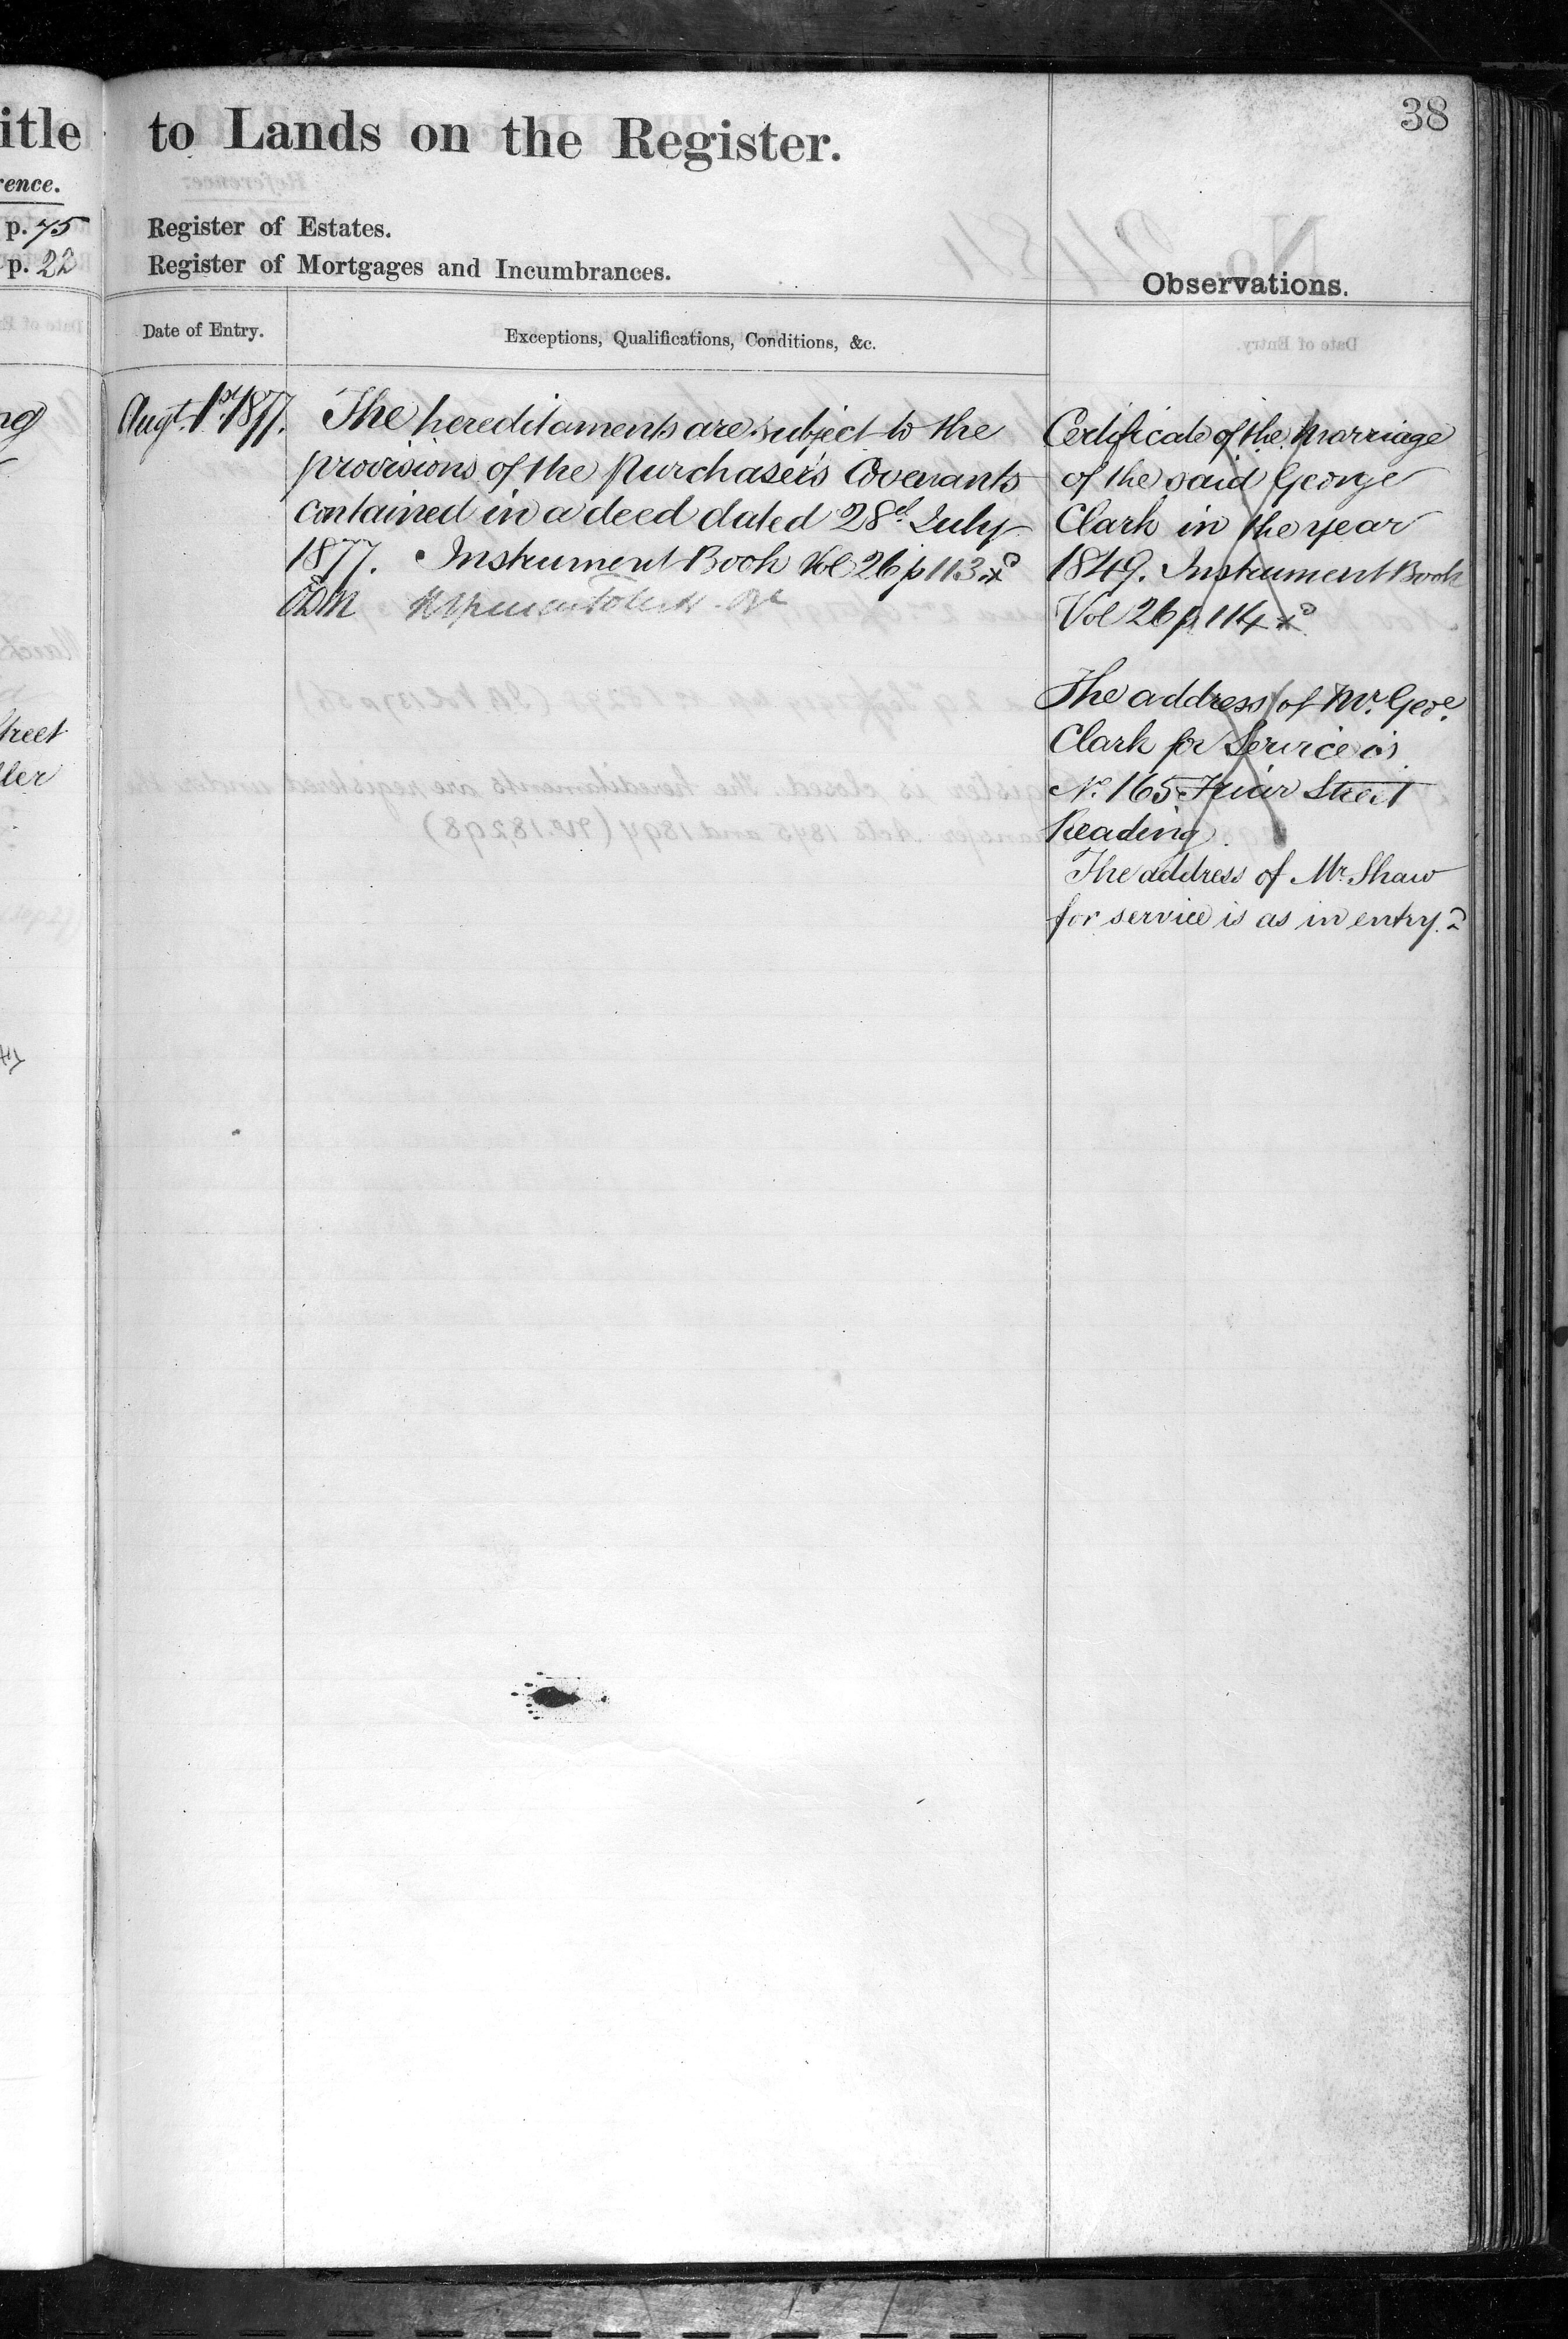 38
itle to Lands on the Register.
rence.
p. 75 Register of Estates.
p. 22 Register of Mortgages and Incumbrances.
Observations.
Date of Entry.
Exceptions, Qualifications, Conditions, &c.
Augt. 1st 1877.
The hereditaments are subject to the
provisions of the Purchaser's Covenants
contained in a deed dated 28th July
1877. Instrument Book Vol 26 p 113
Certificate of the Marriage
of the said George
Clark in the year
1849. Instrument Book
Vol 26 p 114
The address of Mr. Geoe.
Clark for Service is
No. 165 Friar Street
Reading.
The address of Mr. Shaw
for service is as in entry.
ng
treet
ller